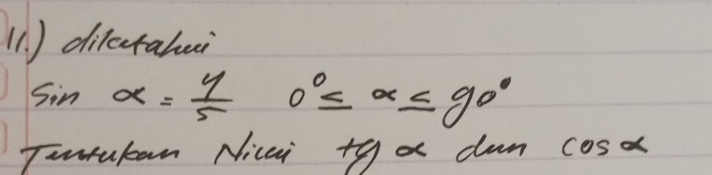 11.) diketahui
Sin α = 4/5 0° ≤ α ≤ 90°
Tentukan Nilai tg α dan cos α